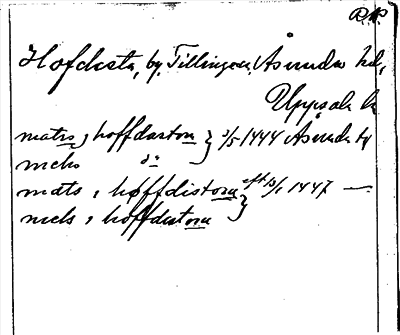 D.P.
Hofdesta, by, Tillinge sn, Åsunda hd,
Uppsala l.
mats, hoffdastom } 3/5 1444 Åsunda
niels do
mats, høffdistom } eft 13/1 1447 —
niels, hoffdistom